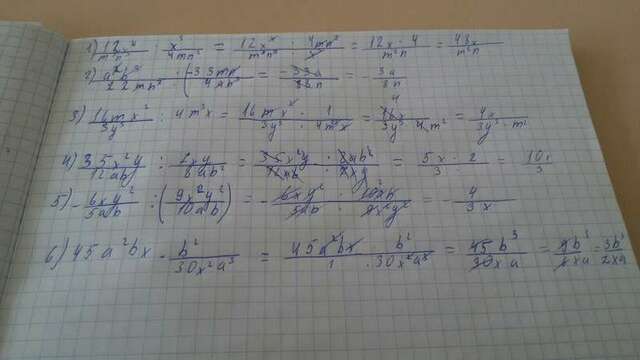 1) 12x⁴/m²n³ : x³/4mn² = 12x⁴/m²n³ : 4mn²/x³ = 12x · 4/m²n = 48x/m²n
2) a²b²/22mn³ : (-33mn/4ab²) = -33a/33n = -3a/3n
3) 16mx²/3y³ : 4m³x = 16mx²/3y³ · 1/4m³x = 4x/3y³ · m²
4) 35x²y/12ab : 7xy/8ab² = 35x²y/12ab · 8ab²/7xy = 5x · 2/3 = 10x/3
5) -6xy²/5ab : (9x²y²/10ab) = -6xy²/5ab : 10ab/9x²y² = -4/3x
6) 45a²bx · b²/30x²a³ = 45a²bx/1 · b²/30x²a³ = 45b³/30xa = 9b³/xa = 3b³/2xa